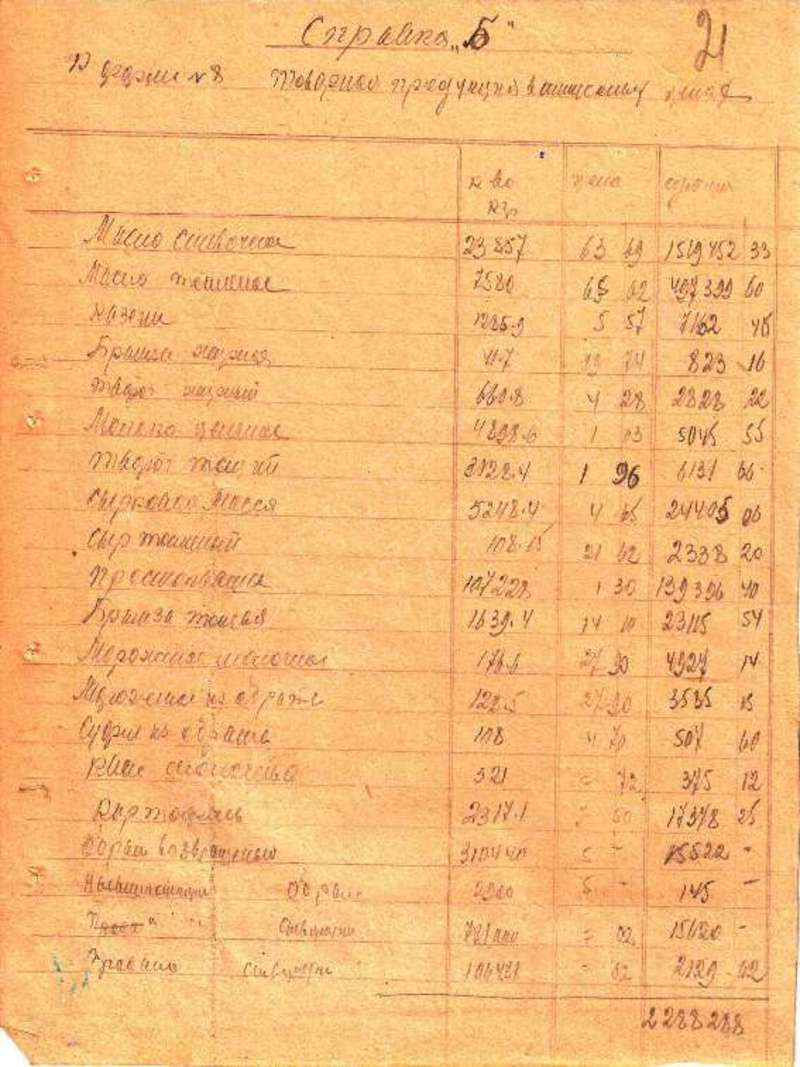 Справка „Б"
21
К форме № 8 товарной продукции в отпускных ценах
к-во кг цена сумма
Масло сливочное 23857 63 69 1519452 33
Масло топленое 7580 65 62 497399 60
Казеин 1285.9 5 57 7162 45
Брынза жирная 41.7 19 74 823 16
Творог жирный 660.8 4 28 2828 22
Молоко цельное 4898.6 1 03 5045 55
Творог тощий 3128.4 1 96 6131 66
Сырковая масса 5248.4 4 65 24405 06
Сыр топленый 108.15 21 62 2338 20
Простокваша 107228 1 30 139396 40
Брынза тощая 1639.4 14 10 23115 54
Мороженое молочное 176.6 27 90 4927 14
Мороженое из обрата 128.5 27 90 3535 15
Суфле из обрата 108 4 70 507 60
Квас 521 - 72 375 12
Картофель 2317.1 7 50 17378 25
Обрат возвращенного 310440 5 - 15522 -
Обрат 2900 5 - 145 -
" " Сыворотки 781000 - 02 15620 -
Продано сыворотки 106481 - 02 2129 62
2288288